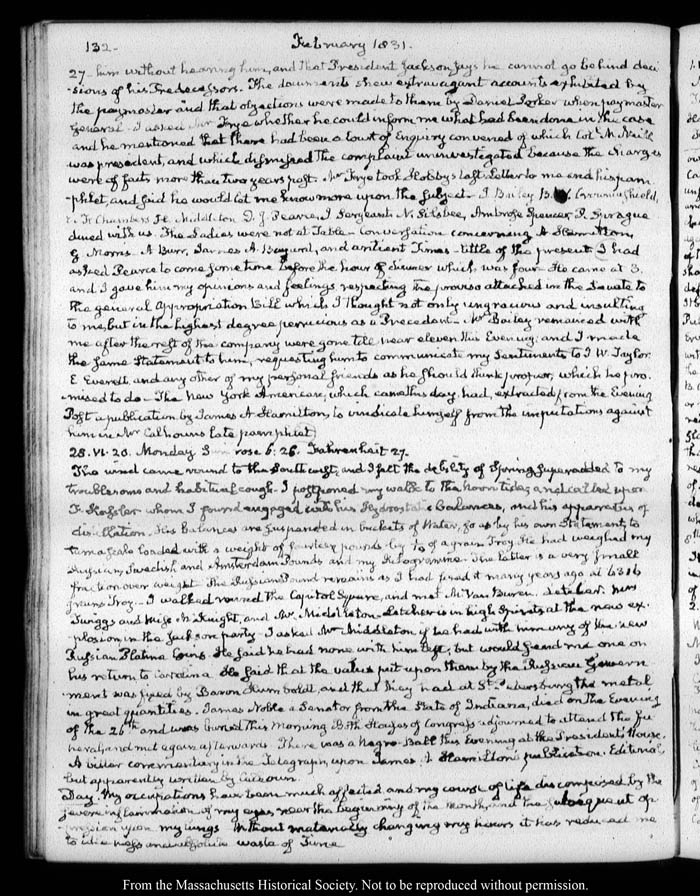 132-
February 1831.
27- him without hearing him, and that President Jackson says he cannot go behind deci
-sions of his Predecessors. The documents show extravagant accounts exhibited by
the paymaster and that objections were made to them by Daniel Parker when paymaster
General. I asked Mr Frye whether he could inform me what had been done in this case
and he mentioned that there had been a Court of Enquiry convened of which Col. M. Neill
was president, and which dismissed the complaint uninvestigated because the charges
were of facts more than two years past. Mr Frye took Hobby's last Letter to me and his pam
phlet, and said he would let me know more upon the subject- J Bailey B. Crowninshield,
Chambers H. Middleton D. J. Pearce, J Sergeant N. Silsbee, Ambrose Spencer P. Sprague
dined with us. The Ladies were not at Table- Conversation concerning A Hamilton
G Morris. A Burr, James A. Bayard, and antient Times- little of the present. I had
asked Pearce to come some time before the hour of dinner which was four- He came at 3.
and I gave him my opinions and feelings respecting the proviso attached in the Senate to
the general Appropriation Bill which I thought not only ungracious and insulting
to me, but in the highest degree pernicious as a Precedent- Mr Bailey remained with
me after the rest of the company were gone till near eleven this Evening; and I made
the same Statement to him, requesting him to communicate my Sentiments to J W. Taylor
E Everett, and any other of my personal friends as he should think proper, which he pro.
-mised to do- The New York American, which came this day, had extracted from the Evening
Post a publication by James A Hamilton, to vindicate himself from the imputations against
him in Mr Calhoun's late pamphlet
28. VI. 20. Monday Sun rose 6: 26. Fahrenheit 27.
The wind came round to the Southwest, and I felt the debility of Spring superadded to my
troublesome and habitual cough- I postponed my walk to the noon tide, and called upon
Hassler whom I found engaged with his Hydrostatic Balances, and his apparatus of
distillation. His Balances are suspended in buckets of Water, so as by his own Statement, to
turn a scale loaded with a weight of fourteen pounds by of a grain Troy. He had weighed my
Russian, Swedish and Amsterdam Pounds and my Kilogramme. The latter is a very small
fraction over weight The Russian Pound remains as I had fixed it many years ago at 6316
grains Troy- I walked round the Capitol Square, and met M. Van Buren. Letcher.
Twiggs and Wise McKnight, and Mr. Middleton- Letcher is in high Spirits at the new ex.
-plosion in the Jackson party- I asked Mr Middleton if he had with him any of the new
Russian Platina Coins. He said he had none with him left, but would send me one on
his return to Carolina He said that the value put upon them by the Russian Govern
-ment was fixed by Baron Humboldt, and that they had at St. Petersburg the metal
in great quantities. James Noble a Senator from the State of Indiana, died on the Evening
of the 26th and was buried this morning Both Houses of Congress adjourned to attend the fu
neral, and met again afterwards. There was a Ball this Evening at the President's House.
A bitter commentary in the Telegraph, upon James A Hamilton's publication. Editorial,
but apparently written by Calhoun.
Day. My occupations have been much affected and my course of life discomposed by the
severe inflammation of my eyes, near the beginning of the month, and the subsequent op
-pression upon my lungs Without materially changing my hours it has reduced me
to waste of Time
From the Massachusetts Historical Society. Not to be reproduced without permission.